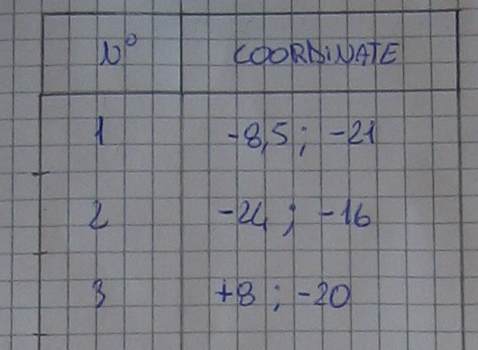 N° COORDINATE
1 -8,5 ; -21
2 -24 ; -16
3 +8 ; -20